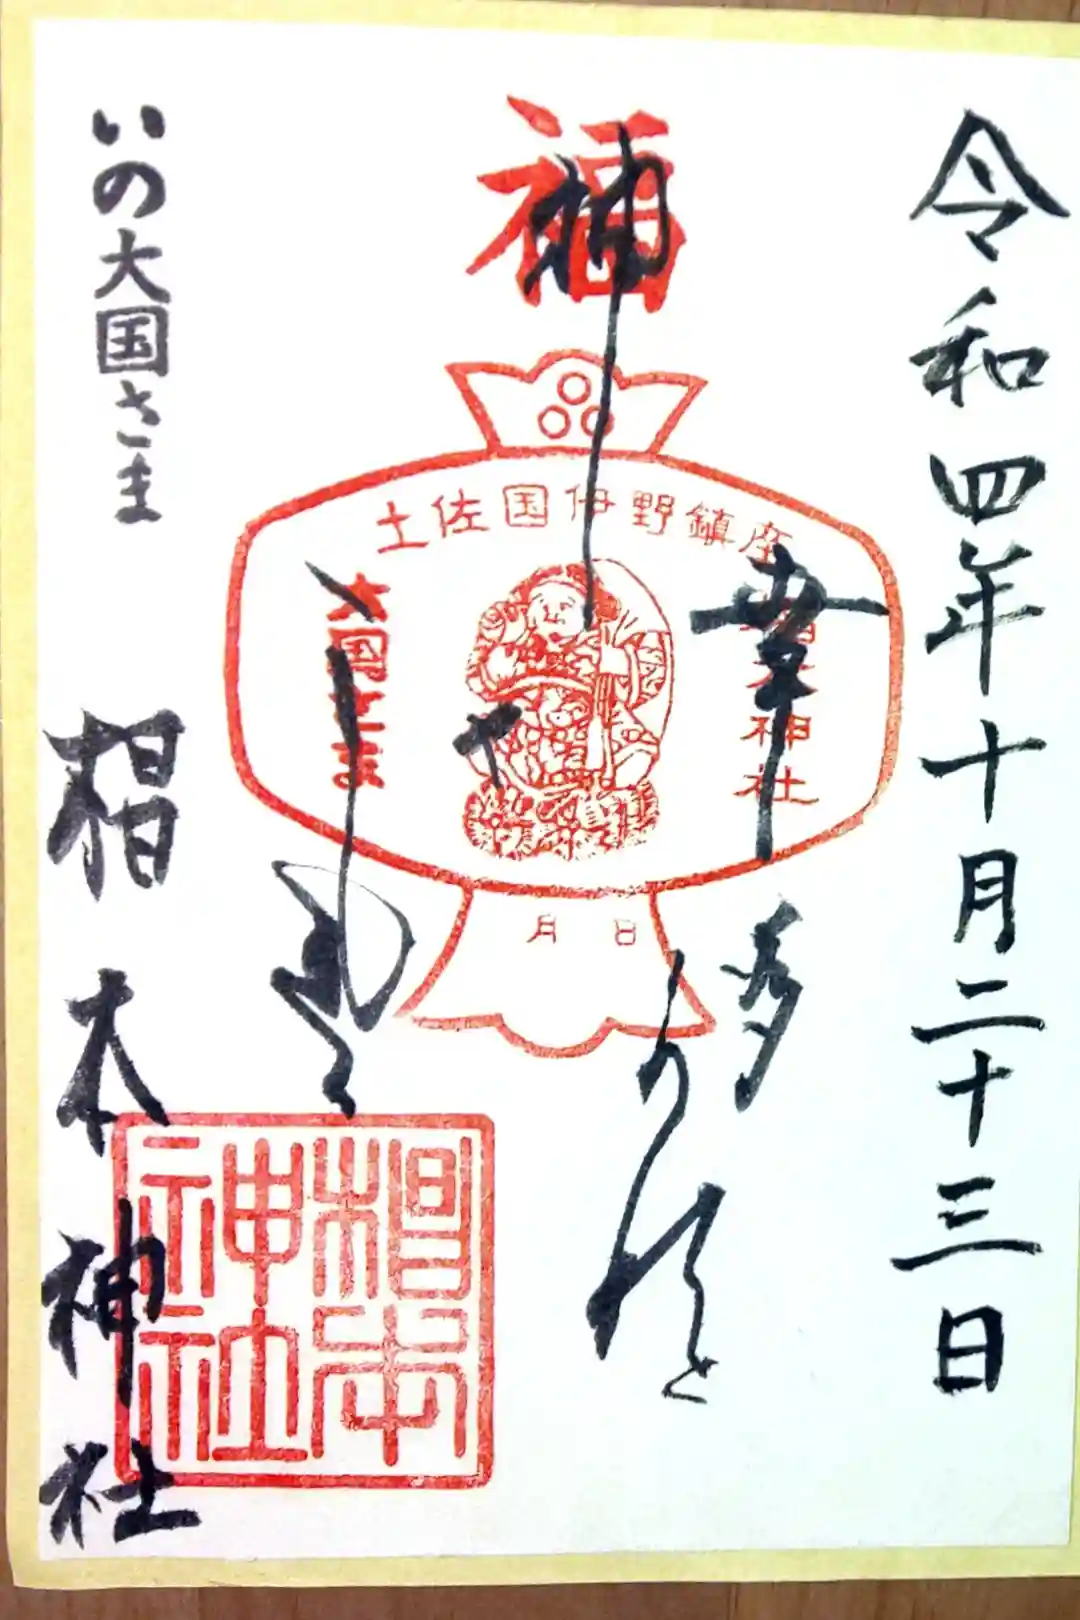 令和四年十月二十三日
福
土佐国伊野鎮座
椙本神社
大国さま
月 日
いの大国さま
椙本神社
椙本神社